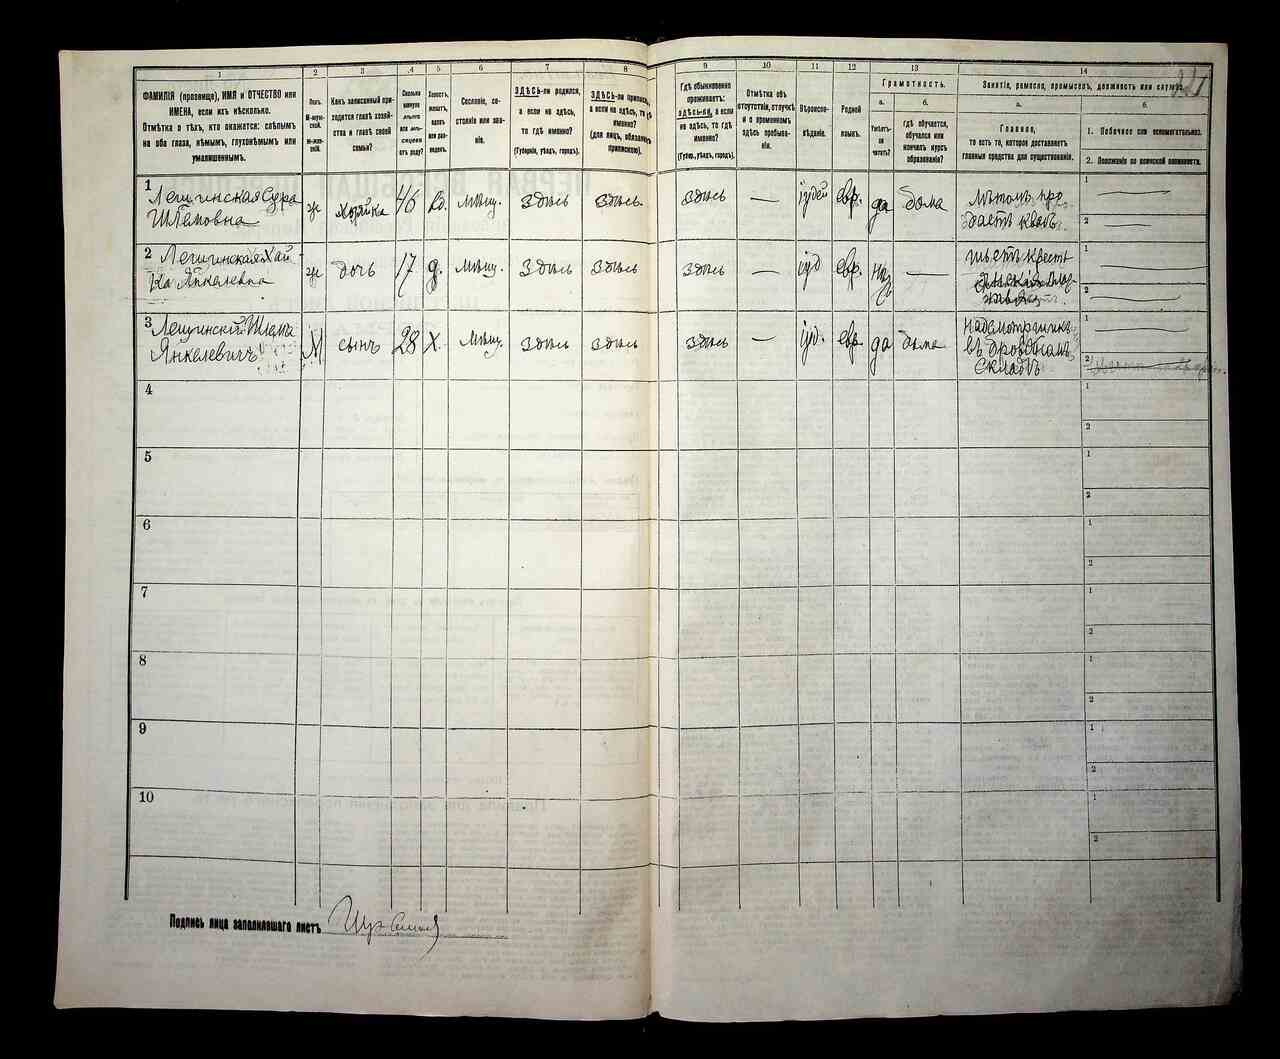 1 2 3 4 5 6 7 8 9 10 11 12 13 14
ФАМИЛІЯ (прозвище), ИМЯ и ОТЧЕСТВО или
ИМЕНА, если ихъ нѣсколько.
Отмѣтка о тѣхъ, кто окажется: слѣпымъ
на оба глаза, нѣмымъ, глухонѣмымъ или
умалишеннымъ.
Полъ.
М-муж-
ской.
Ж-жен-
скій.
Какъ записанный при-
ходится главѣ хозяй-
ства и главѣ своей
семьи?
Сколько
минуло
лѣтъ
или мѣ-
сяцевъ
отъ роду?
Холостъ,
женатъ,
вдовъ
или раз-
веденъ.
Сословіе, со-
стояніе или зва-
ніе.
ЗДѢСЬ-ли родился,
а если не здѣсь,
то гдѣ именно?
(Губернія, уѣздъ, городъ).
ЗДѢСЬ-ли приписанъ,
а если не здѣсь, то гдѣ
именно?
(для лицъ, обязанныхъ
припискою).
Гдѣ обыкновенно
проживаетъ:
здѣсь-ли, а если
не здѣсь, то гдѣ
именно?
(Губер., уѣздъ, городъ).
Отмѣтка объ
отсутствіи, отлучкѣ
и о временномъ
здѣсь пребыва-
ніи.
Вѣроиспо-
вѣданіе.
Родной
языкъ.
Грамотность.
а.
Умѣетъ-
ли
читать?
б.
гдѣ обучается,
обучался или
кончилъ курсъ
образованія?
Занятіе, ремесло, промыселъ, должность или служба.
а.
Главное,
то есть то, которое доставляетъ
главныя средства для существованія.
б.
1. Побочное или вспомогательное.
2. Положеніе по воинской повинности.
1 Лещинская Сура
Шлемовна
ж хозяйка 46 вд. мѣщ. здѣсь здѣсь здѣсь — іудей евр. да дома
Лѣтомъ про
даетъ квасъ.
1 —
2 —
2 Лещинская Хай
ка Янкелевна
ж дочь 17 д. мѣщ. здѣсь здѣсь здѣсь — іуд евр. —
шьетъ
1 —
2 —
3 Лещинскій Шлема
Янкелевичъ
М сынъ 28 Х. мѣщ. здѣсь здѣсь здѣсь — іуд. евр. да дома
Надсмотрщикъ
въ
складѣ
1 —
2
4 1
2
5 1
2
6 1
2
7 1
2
8 1
2
9 1
2
10 1
2
Подпись лица заполнявшаго листъ